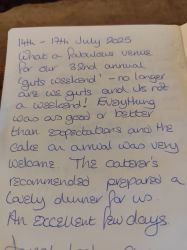 14th - 17th July 2025
What a fabulous venue
for our 32nd annual
'girls weekend' - no longer
are we girls and its not
a weekend! Everything
was as good or better
than expectations and the
cake on arrival was very
welcome. The caterers
recommended prepared a
lovely dinner for us.
An excellent few days.